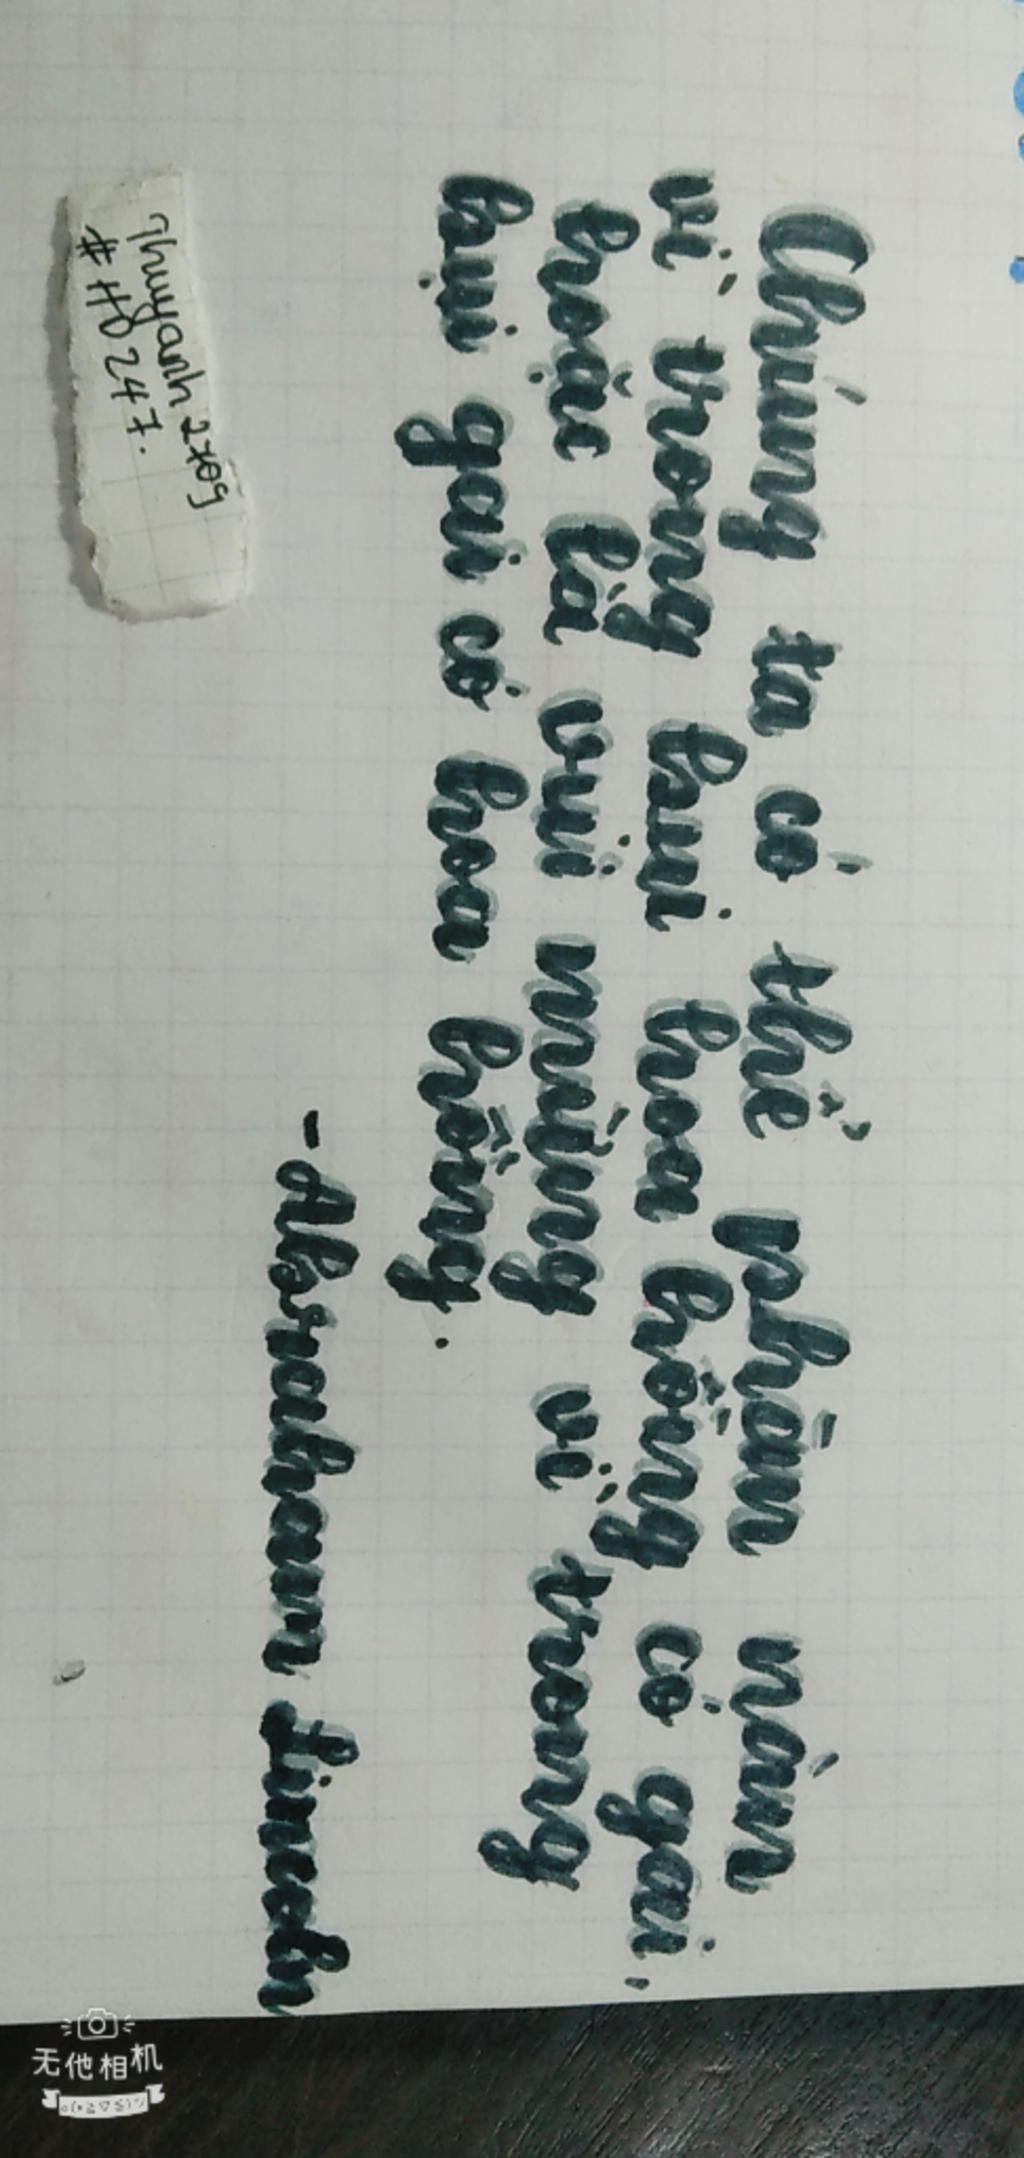 Chúng ta có thể phàn nàn
vì trong bụi hoa hồng có gai,
hoặc là vui mừng vì trong
bụi gai có hoa hồng.
- Abraham Lincoln
Thuyanh2709
#HD247.
无他相机